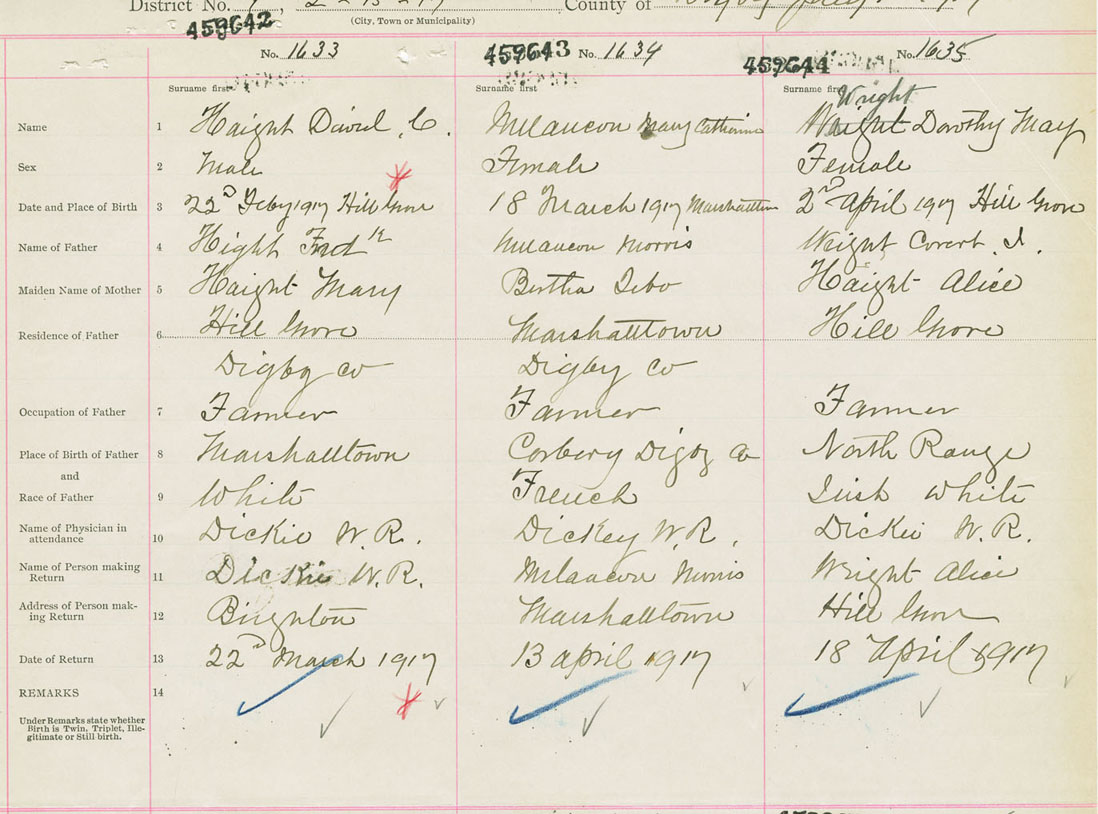 District No. County of
(City, Town or Municipality)
459642 459643 459644
No. 1633 No. 1634 No. 1635
Surname first Surname first Surname first
Wright
Name 1 Haight David C. Melancon Mary Catherine Wright Dorothy May
Sex 2 Male Female Female
Date and Place of Birth 3 22nd Feby 1917 Hill Grove 18 March 1917 Marshalltown 2nd April 1917 Hill Grove
Name of Father 4 Hight Fredk Melancon Morris Wright Covert I.
Maiden Name of Mother 5 Haight Mary Bertha Tebo Haight Alice
Residence of Father 6 Hill Grove Marshalltown Hill Grove
Digby Co Digby Co
Occupation of Father 7 Farmer Farmer Farmer
Place of Birth of Father 8 Marshalltown Corbery Digby Co North Range
and
Race of Father 9 White French Irish White
Name of Physician in
attendance 10 Dickie W.R. Dickey W.R. Dickie W.R.
Name of Person making
Return 11 Dickie W.R. Melancon Morris Wright Alice
Address of Person mak-
ing Return 12 Marshalltown Hill Grove
Date of Return 13 22nd March 1917 13 April 1917 18 April 1917
REMARKS 14
Under Remarks state whether
Birth is Twin, Triplet, Ille-
gitimate or Still birth.